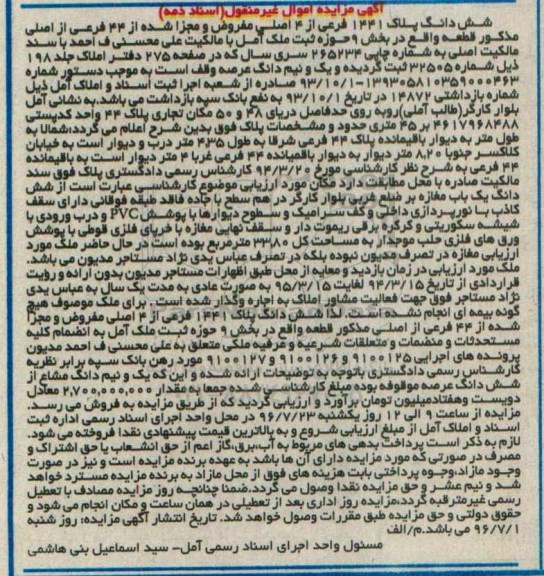 آگهی مزایده اموال غیرمنقول(اسناد ذمه)
شش دانگ پلاک ۱۴۴۱ فرعی از ۴ اصلی مفروض و مجزا شده از ۴۴ فرعی از اصلی
مذکور قطعه واقع در بخش ۹ حوزه ثبت ملک آمل با مالکیت علی محسنی ف احمد با سند
مالکیت اصلی به شماره چاپی ۲۶۵۲۳۴ سری سال که در صفحه ۲۷۵ دفتر املاک جلد ۱۹۸
ذیل شماره ۳۲۵۰۵ ثبت گردیده و یک و نیم دانگ عرصه وقف است به موجب دستور شماره
۱۳۹۳۰۵۸۱۰۳۵۹۰۰۰۴۶۳-۹۳/۱۰/۱ صادره از شعبه اجرا ثبت اسناد و املاک آمل ذیل
شماره بازداشتی ۱۴۸۷۲ در تاریخ ۹۳/۱۰/۱ به نفع بانک سپه بازداشت می باشد.به نشانی آمل
بلوار کارگر(طالب آملی)روبه روی حدفاصل دریای ۴۸ و ۵۰ مکان تجاری پلاک ۴۴ واحد کدپستی
۴۶۱۷۹۶۸۴۸۸ بر ۴۵ متری حدود و مشخصات پلاک فوق بدین شرح اعلام می گردد:شمالا به
طول متر به دیوار باقیمانده پلاک ۴۴ فرعی شرقا به طول ۴٫۳۵ متر درب و دیوار است به خیابان
کلاکسر جنوبا ۸٫۲۰ متر دیوار به دیوار باقمیانده ۴۴ فرعی غربا ۴ متر دیوار است به باقیمانده
۴۴ فرعی به شرح نظر کارشناسی مورخ ۹۴/۳/۲۰ کارشناس رسمی دادگستری پلاک فوق سند
مالکیت صادره با محل مطابقت دارد مکان مورد ارزیابی موضوع کارشناسی عبارت است از شش
دانگ یک باب مغازه بر ضلع غربی بلوار کارگر در هم سطح با جاده فاقد طبقه فوقانی دارای سقف
کاذب با نورپردازی داخلی و کف سرامیک و سطوح دیوارها با پوشش PVC و درب ورودی با
شیشه سکوریتی و کرکره برقی ریموت دار و سقف نهایی مغازه با خرپای فلزی قوطی با پوشش
ورق های فلزی حلب موجدار به مساحت کل ۳۳٫۸۰ مترمربع بوده است در حال حاضر ملک مورد
ارزیابی مغازه در تصرف مدیون نبوده بلکه در تصرف عباس یدی نژاد مستاجر مدیون می باشد.
ملک مورد ارزیابی در زمان بازدید و معاینه از محل طبق اظهارات مستاجر مدیون بدون ارائه و رؤیت
قراردادی از تاریخ ۹۴/۳/۱۵ لغایت ۹۵/۳/۱۵ به صورت عادی به مدت یک سال به عباس یدی
نژاد مستاجر فوق جهت فعالیت مشاور املاک به اجاره واگذار شده است . برای ملک موصوف هیچ
گونه بیمه ای انجام نشده است. لذا شش دانگ پلاک ۱۴۴۱ فرعی از ۴ اصلی مفروض و مجزا
شده از ۴۴ فرعی از اصلی مذکور قطعه واقع در بخش ۹ حوزه ثبت ملک آمل به انضمام کلیه
مستحدثات و منضمات و متعلقات شرعیه و عرفیه ملکی متعلق به علی محسنی ف احمد مدیون
پرونده های اجرایی ۹۱۰۰۱۲۵ و ۹۱۰۰۱۲۶ و ۹۱۰۰۱۲۷ مورد رهن بانک سپه برابر نظریه
کارشناس رسمی دادگستری باتوجه به توضیحات ارائه شده و این که یک و نیم دانگ مشاع از
شش دانگ عرصه موقوفه بوده مبلغ کارشناسی شده جمعا به مقدار ۲٫۷۰۰٫۰۰۰٫۰۰۰ معادل
دویست وهفتادمیلیون تومان برآورد و ارزیابی گردید که از طریق مزایده به فروش می رسد.
مزایده از ساعت ۹ الی ۱۲ روز یکشنبه ۹۶/۷/۲۳ در محل واحد اجرای اسناد رسمی اداره ثبت
اسناد و املاک آمل از مبلغ ارزیابی شروع و به بالاترین قیمت پیشنهادی نقدا فروخته می شود.
لازم به ذکر است پرداخت بدهی های مربوط به آب،برق،گاز اعم از حق انشعاب یا حق اشتراک و
مصرف در صورتی که مورد مزایده دارای آن ها باشد به عهده برنده مزایده است و نیز در صورت
وجود مازاد،وجوه پرداختی بابت هزینه های فوق از محل مازاد به برنده مزایده مسترد خواهد
شد و نیم عشر و حق مزایده نقدا وصول می گردد.ضمنا چنانچه روز مزایده مصادف با تعطیل
رسمی غیرمترقبه گردد،مزایده روز اداری بعد از تعطیلی در همان ساعت و مکان انجام می شود و
حقوق دولتی و حق مزایده طبق مقررات وصول خواهد شد. تاریخ انتشار آگهی مزایده: روز شنبه
۹۶/۷/۱ می باشد.م/الف
مسئول واحد اجرای اسناد رسمی آمل- سید اسماعیل بنی هاشمی